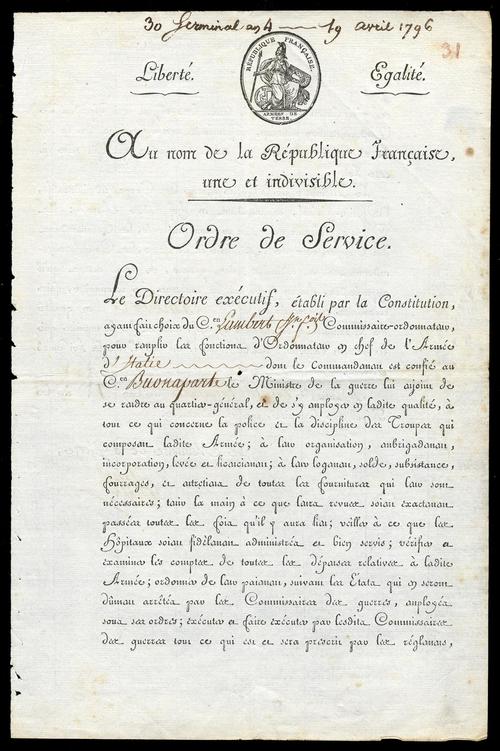 30 Germinal an 4 — 19 avril 1796
31
RÉPUBLIQUE FRANÇAISE.
Liberté. Egalité.
ARMÉES DE
TERRE
Au nom de la République Française,
une et indivisible.
Ordre de Service.
Le Directoire exécutif, établi par la Constitution,
ayant fait choix du C.en Lambert Commissaire-ordonnateur,
pour remplir les fonctions d'Ordonnateur en chef de l'Armée
d'Italie dont le Commandement est confié au
C.en Buonaparte le Ministre de la guerre lui enjoint de
se rendre au quartier-général, et de s'y employer en ladite qualité, à
tout ce qui concerne la police et la discipline des Troupes qui
composent ladite Armée; à leur organisation, embrigadement,
incorporation, levée et licenciement; à leur logement, solde, subsistance,
fourrages, et entretien de toutes les fournitures qui leur sont
nécessaires; tenir la main à ce que leurs revues soient exactement
passées toutes les fois qu'il y aura lieu; veiller à ce que les
Hôpitaux soient fidèlement administrés et bien servis; vérifier et
examiner les comptes de toutes les dépenses relatives à ladite
Armée; ordonner de leur paiement, suivant les Etats qui en seront
dûment arrêtés par les Commissaires des guerres, employés
sous ses ordres; exécuter et faire exécuter par lesdits Commissaires
des guerres tout ce qui est et sera prescrit par les réglemens,